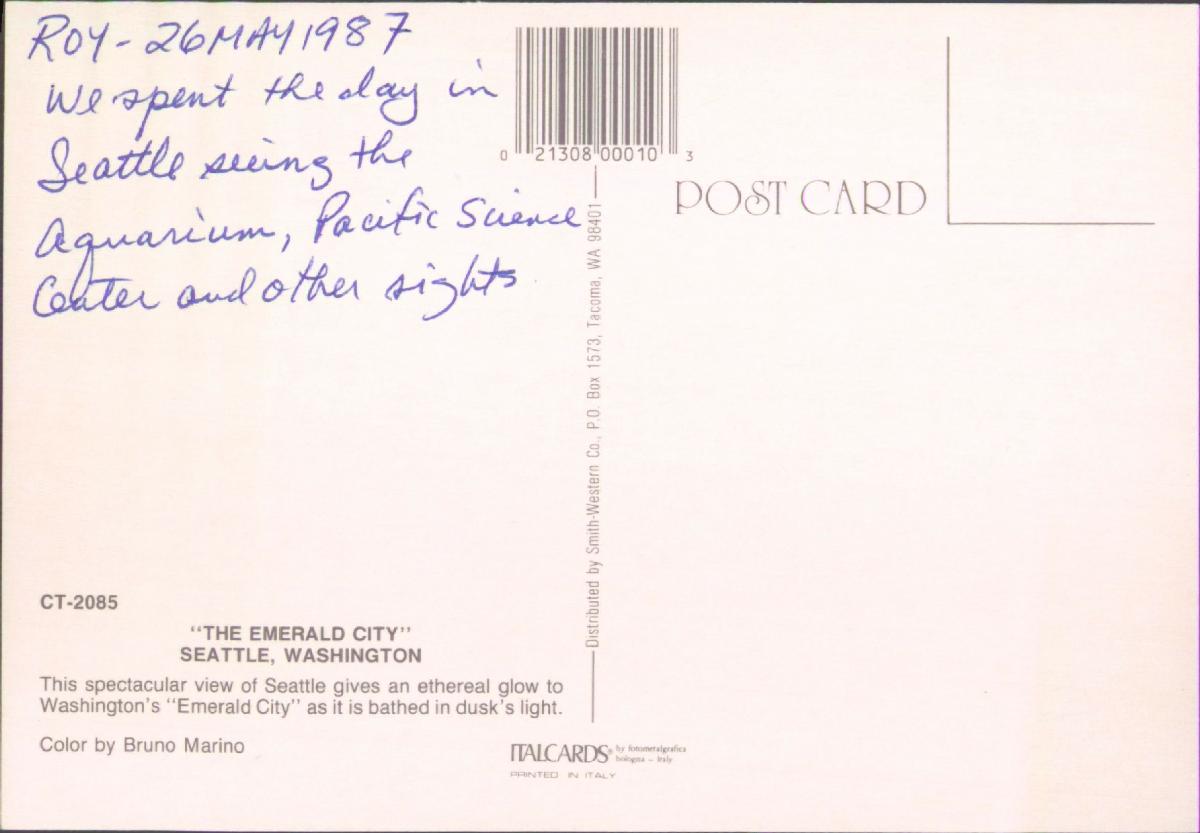 ROY - 26 MAY 1987
We spent the day in
Seattle seeing the
Aquarium, Pacific Science
Center and other sights
0 21308 00010 3
POST CARD
Distributed by Smith-Western Co., P.O. Box 1573, Tacoma, WA 98401
CT-2085
"THE EMERALD CITY"
SEATTLE, WASHINGTON
This spectacular view of Seattle gives an ethereal glow to
Washington's "Emerald City" as it is bathed in dusk's light.
Color by Bruno Marino
ITALCARDS® by fotometalgrafica
bologna - Italy
PRINTED IN ITALY